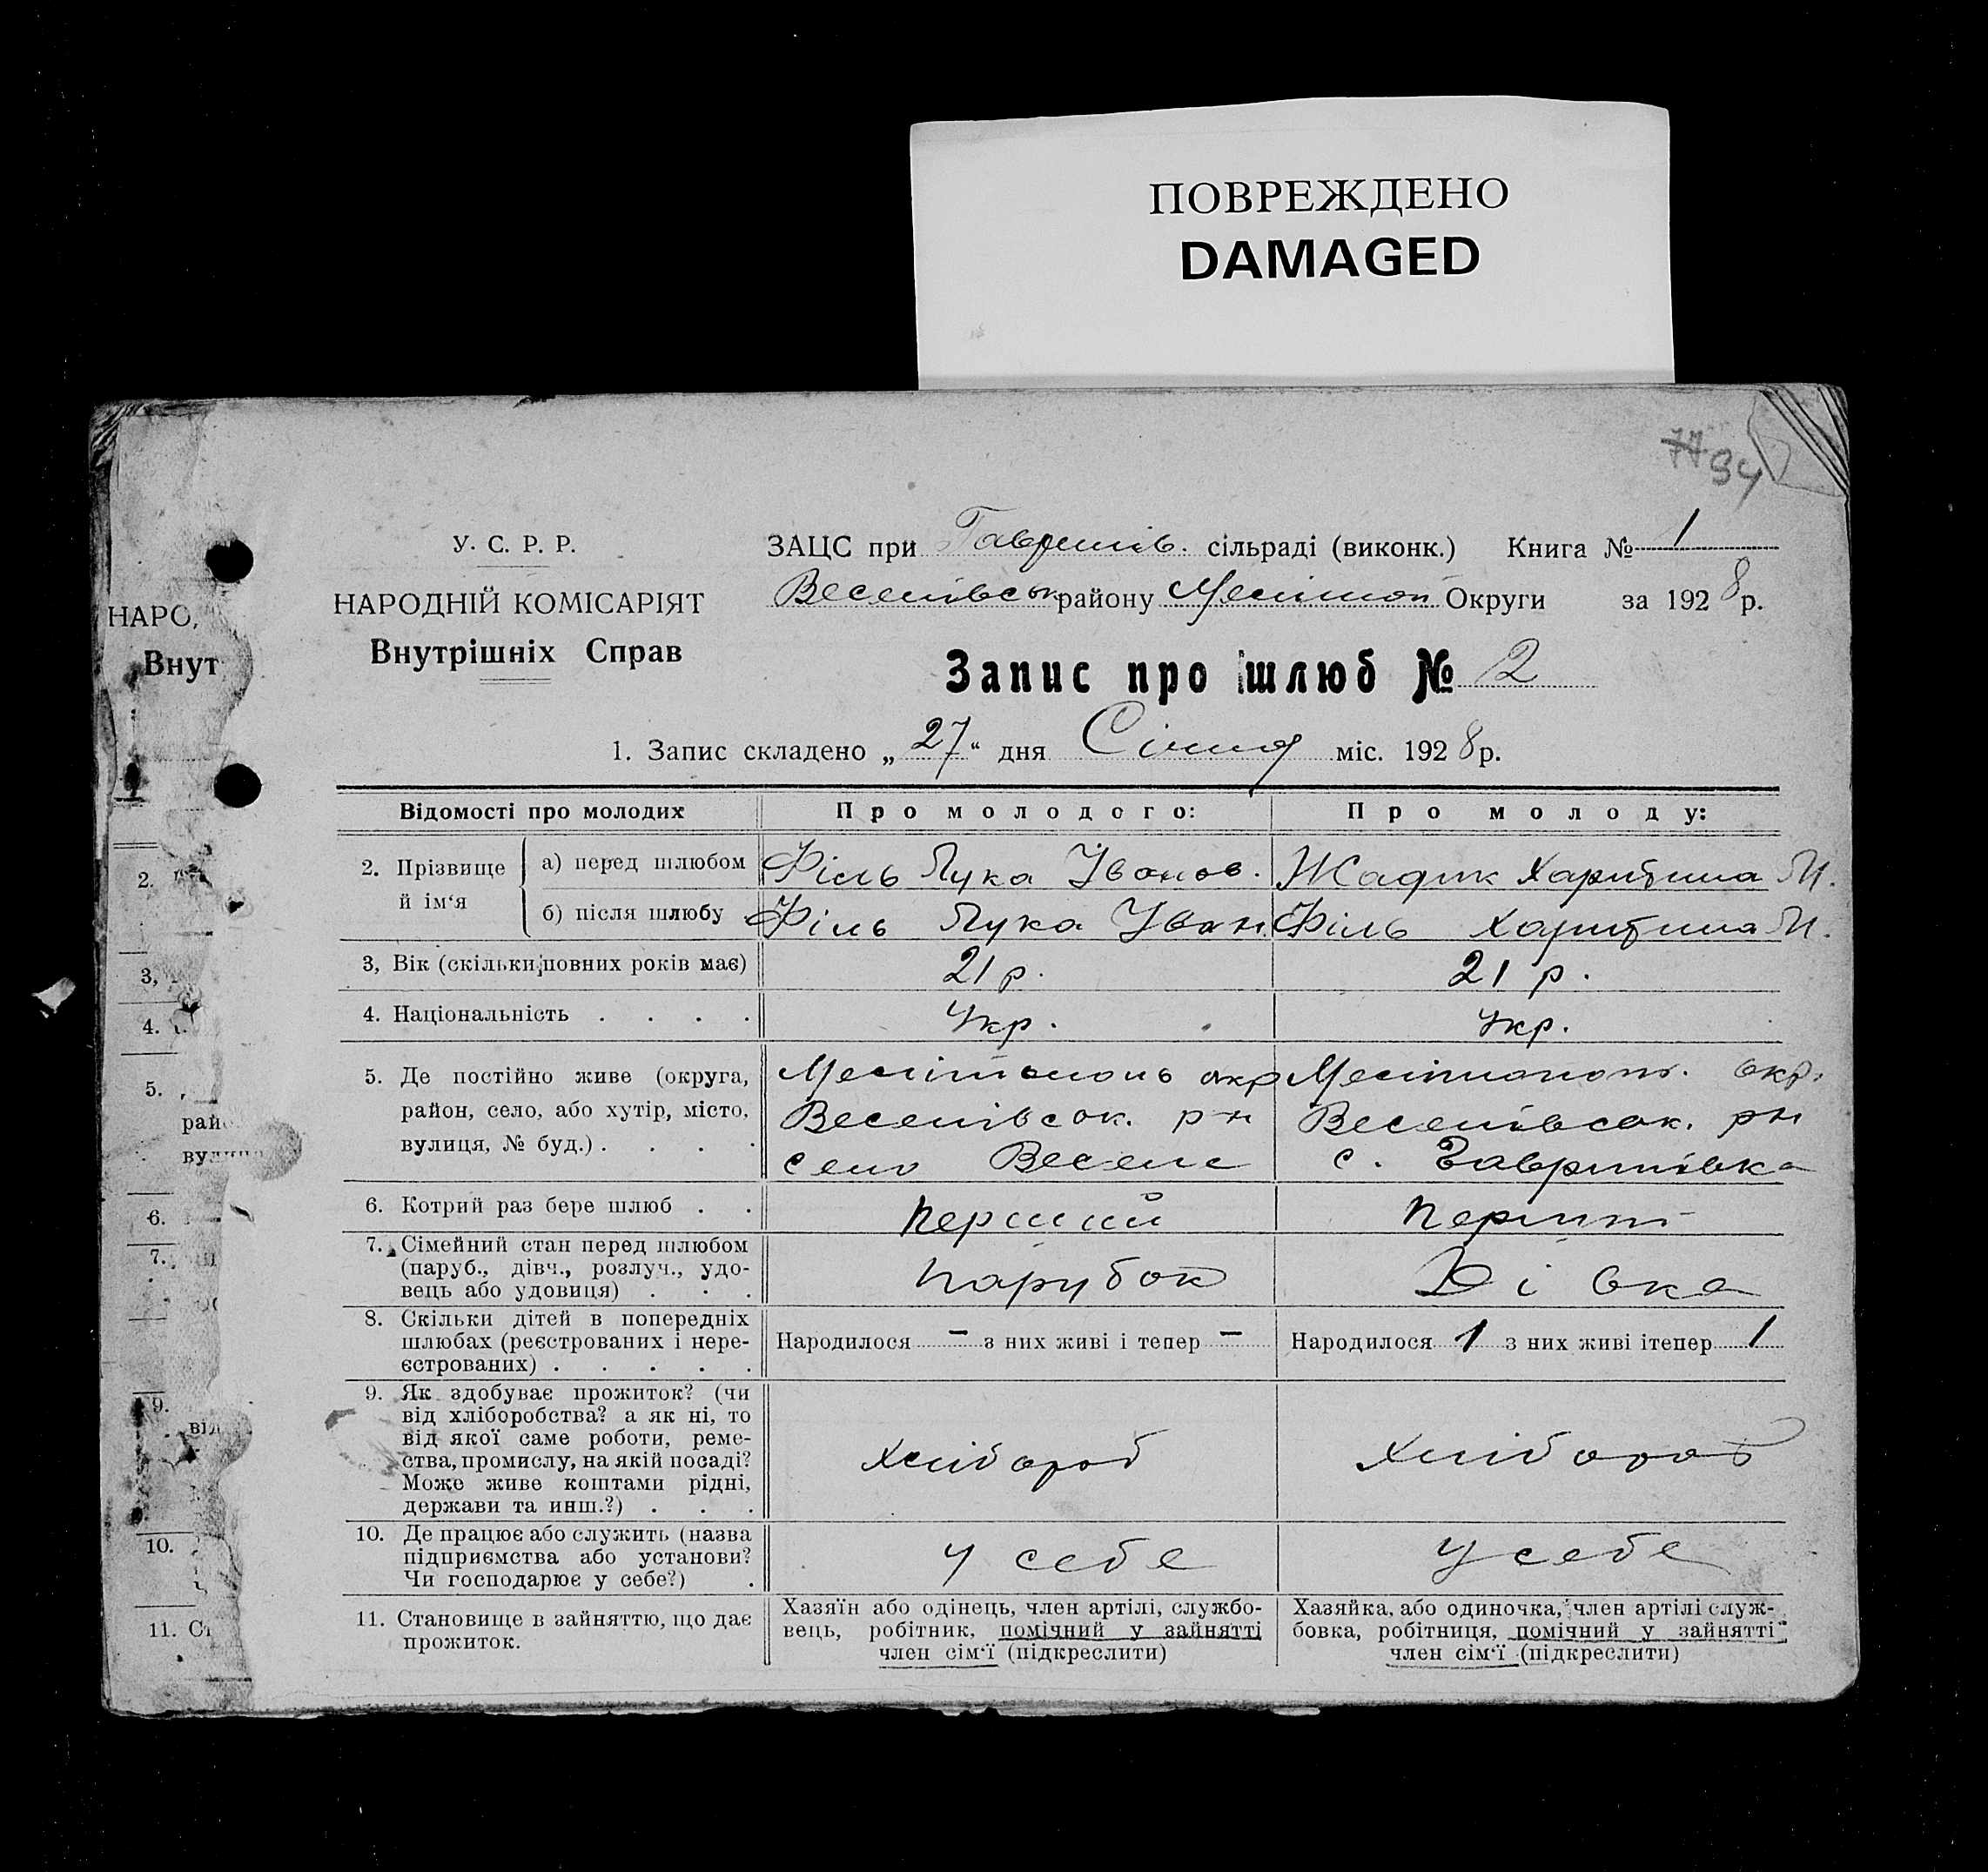 ПОВРЕЖДЕНО
DAMAGED
77 94
У. С. Р. Р.
НАРОДНІЙ КОМІСАРІЯТ
Внутрішніх Справ
ЗАЦС при Гаврилів. сільраді (виконк.) Книга № 1
Веселівськ району Меліитоп Округи за 1928 р.
Запис про шлюб № 2
1. Запис складено „27“ дня Січня міс. 1928 р.
Відомості про молодих Про молодого: Про молоду:
2. Прізвище й ім‘я
а) перед шлюбом Філь Лука Іванов. Жадик Харитина М.
б) після шлюбу Філь Лука Іван Філь Харитина М.
3, Вік (скільки повних років має) 21 р. 21 р.
4. Національність . . . . Укр. Укр.
5. Де постійно живе (округа, Мелітополь окр Мелітополь. окр.
район, село, або хутір, місто, Веселівськ. рн Веселівськ. рн
вулиця, № буд.) . . . . село Веселе с. Гаврилівка
6. Котрий раз бере шлюб . . Перший Перший
7. Сімейний стан перед шлюбом
(паруб., дівч., розлуч., удо-
вець або удовиця) . . . Парубок Дівка
8. Скільки дітей в попередніх
шлюбах (реєстрованих і нере-
єстрованих) . . . . . Народилося – з них живі і тепер – Народилося 1 з них живі ітепер 1
9. Як здобуває прожиток? (чи
від хліборобства? а як ні, то
від якої саме роботи, реме-
ства, промислу, на якій посаді?
Може живе коштами рідні,
держави та инш.?) . . . Хлібороб Хлібороб
10. Де працює або служить (назва
підприємства або установи?
Чи господарює у себе?) . У себе У себе
11. Становище в зайняттю, що дає
прожиток.
Хазяїн або одінець, член артілі, службо-
вець, робітник, помічний у зайнятті
член сім‘ї (підкреслити)
Хазяйка, або одиночка, член артілі служ-
бовка, робітниця, помічний у зайнятті
член сім‘ї (підкреслити)
НАРО
Внут
2.
3,
4.
5.
рай
вул
6.
7.
9.
від
10.
11. Ст